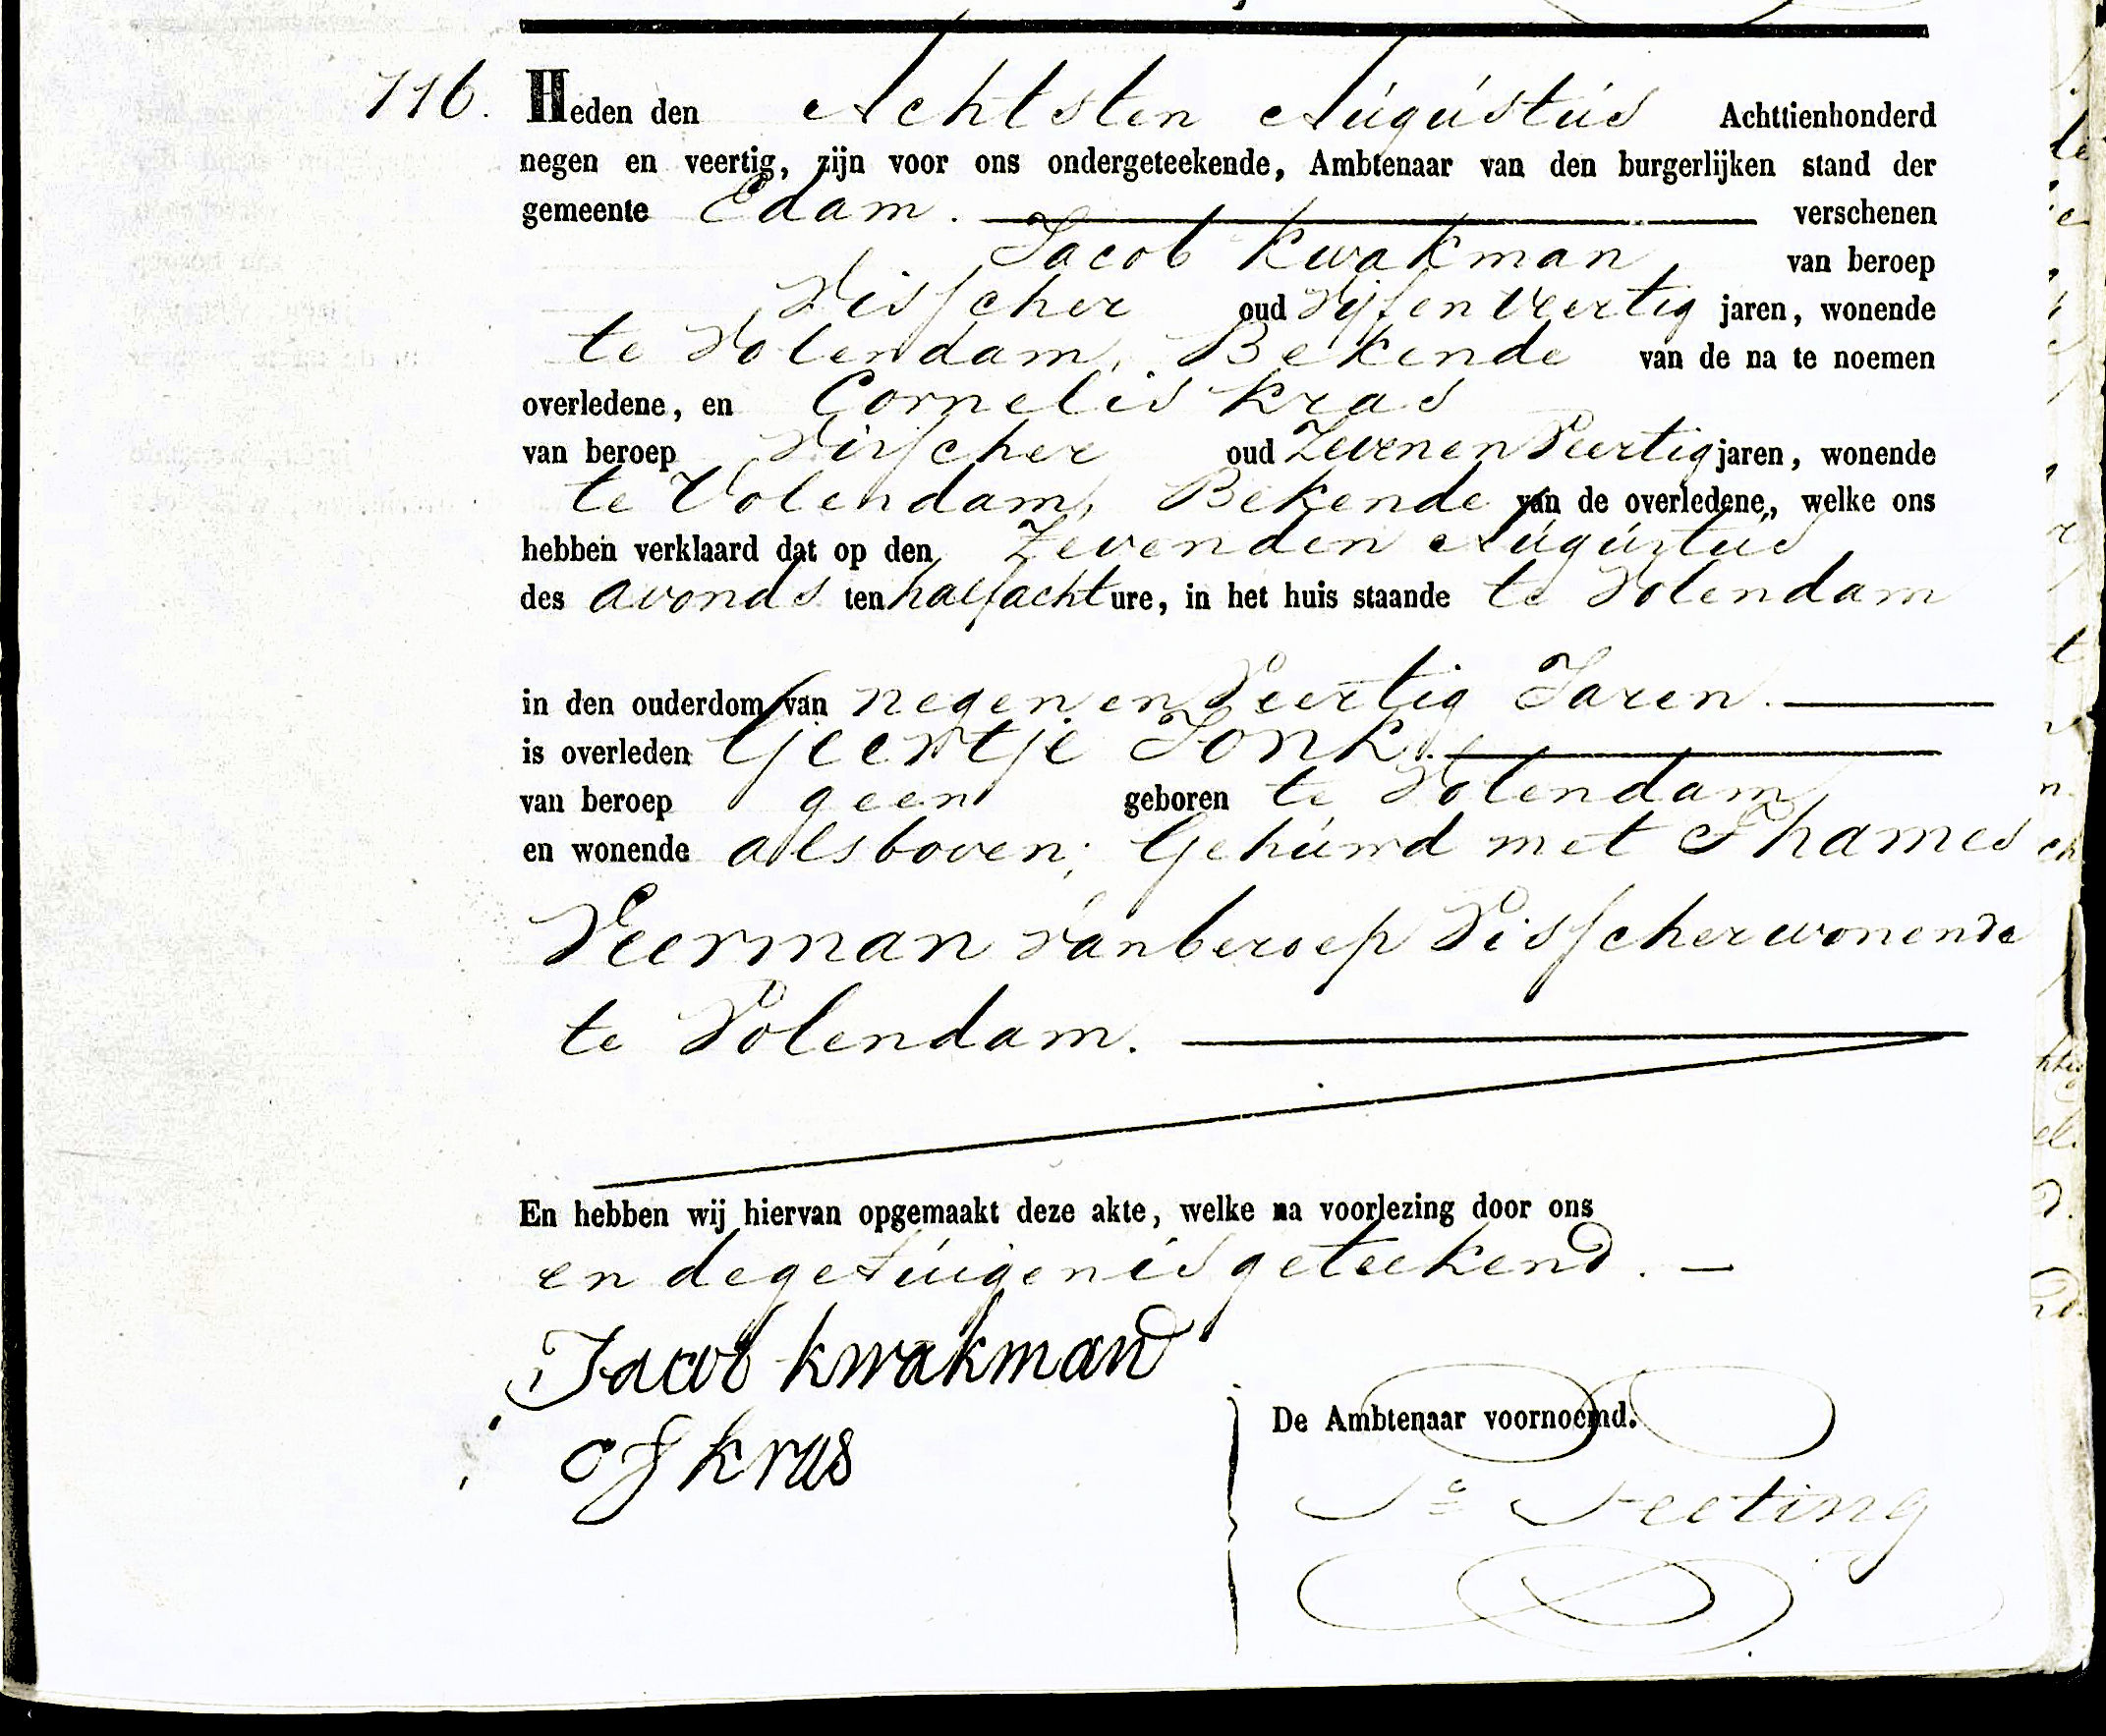 116. Heden den Achtsten Augustus Achttienhonderd
negen en veertig, zijn voor ons ondergeteekende, Ambtenaar van den burgerlijken stand der
gemeente Edam. verschenen
Jacob Kwakman van beroep
Visscher oud Vijfenveertig jaren, wonende
te Volendam, Bekende van de na te noemen
overledene, en Cornelis Kras
van beroep Visscher oud Zevenen Veertig jaren, wonende
te Volendam, Bekende van de overledene,, welke ons
hebben verklaard dat op den Zevenden Augustus
des avonds ten half acht ure, in het huis staande te Volendam
in den ouderdom van negen en Veertig Jaren.
is overleden Geertje Tonk.
van beroep geen geboren te Volendam,
en wonende als boven; Gehuwd met Thames
Veerman van beroep Visscher wonende
te Volendam.
En hebben wij hiervan opgemaakt deze akte, welke na voorlezing door ons
en de getuigen is geteekend. —
Jacob kwakman
kras
De Ambtenaar voornoemd.
Teeting